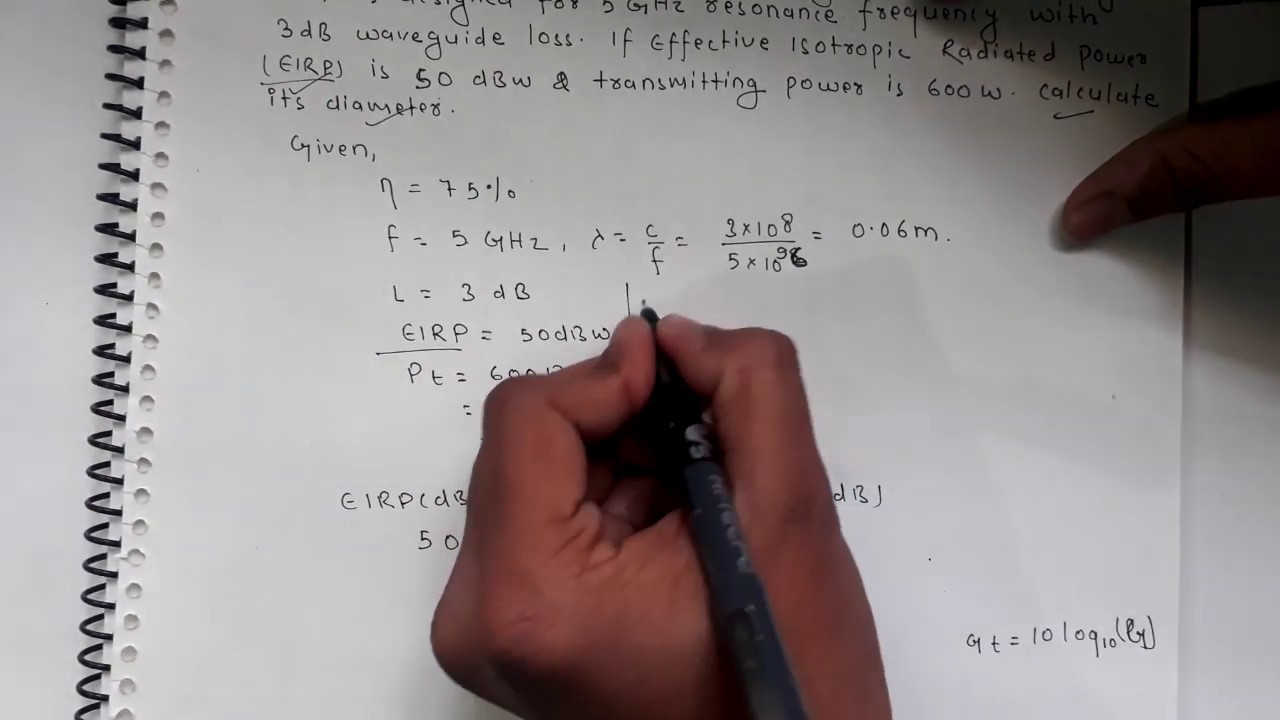 designed for 5 GHz resonance frequency with
3dB waveguide loss. If Effective Isotropic Radiated power
(EIRP) is 50 dBw & transmitting power is 600 w. calculate
its diameter.
Given,
η = 75%
f = 5 GHz, λ = c/f = 3×10^8/5×10^9 = 0.06m.
L = 3 dB
EIRP = 50dBw
Pt = 600
=
EIRP(dB dB)
50
Gt = 10 log10(